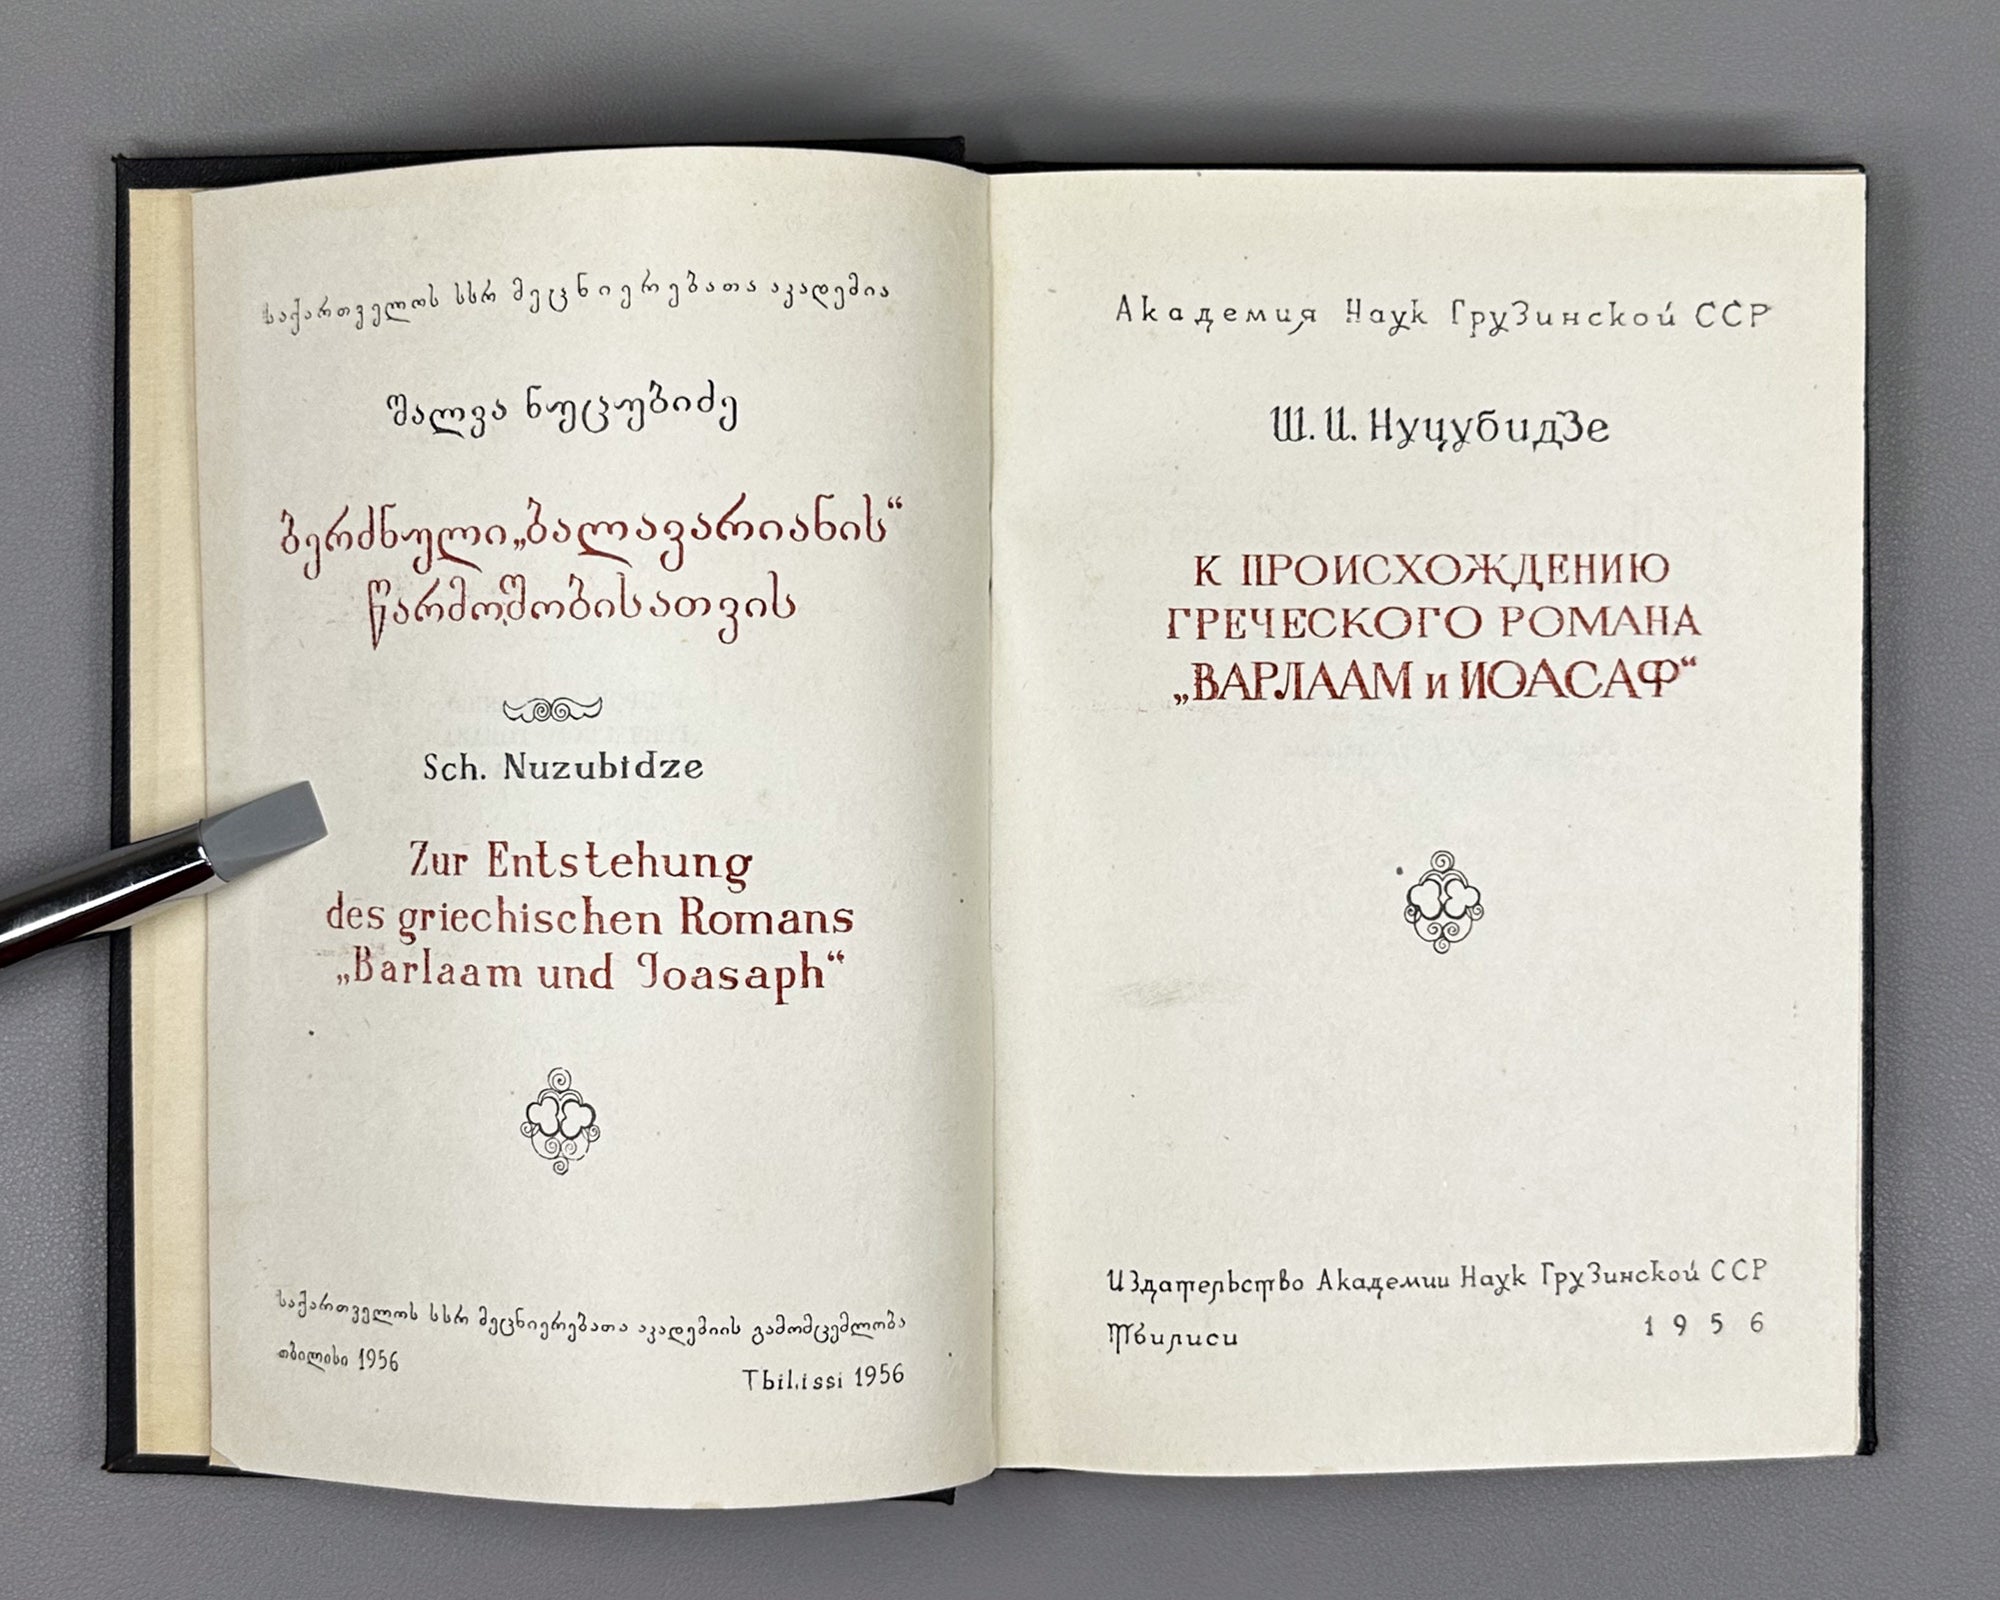 საქართველოს სსრ მეცნიერებათა აკადემია
შალვა ნუცუბიძე
ბერძნული „ბალავარიანის“
წარმოშობისათვის
Sch. Nuzubidze
Zur Entstehung
des griechischen Romans
„Barlaam und Joasaph“
საქართველოს სსრ მეცნიერებათა აკადემიის გამომცემლობა
თბილისი 1956
Tbilissi 1956
Академия Наук Грузинской ССР
Ш. И. Нуцубидзе
К ПРОИСХОЖДЕНИЮ
ГРЕЧЕСКОГО РОМАНА
„ВАРЛААМ и ИОАСАФ“
Издательство Академии Наук Грузинской ССР
Тбилиси 1956